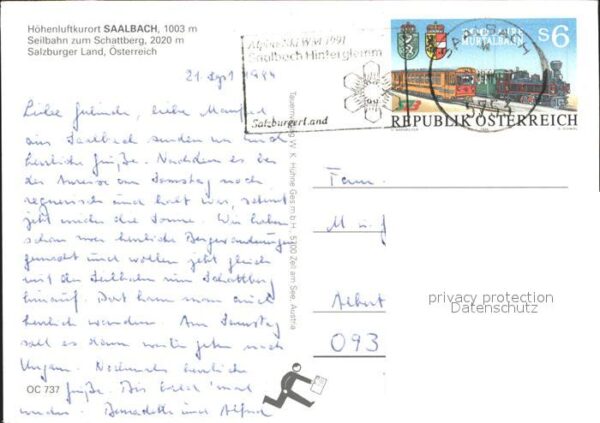 Höhenluftkurort SAALBACH, 1003 m
Seilbahn zum Schattberg, 2020 m
Salzburger Land, Österreich
21 Sept 1994
Liebe Gerlinde, liebe Manfred
aus Saalbach senden wir Euch
herzliche Grüße. Nachdem es bei
der Anreise am Samstag noch
regnerisch und kalt war, scheint
jetzt wieder die Sonne. Wir haben
schon zwei herrliche Bergwanderungen
gemacht und wollen jetzt gleich
mit der Seilbahn zum Schattberg
hinauf. Dort kann man auch
herrlich wandern. Am Samstag
soll es dann weiter gehen nach
Ungarn. Nochmals herzliche
Grüße. Bis bald 'mal
wieder. Bernadette und Alfred
OC 737
Tauernverlag W. K. Hühne Ges.m.b.H. 5700 Zell am See, Austria
Alpine Ski WM 1991
Saalbach Hinterglemm
SalzburgerLand
SAALBACH
5753
MURTALBAHN
S 6
REPUBLIK ÖSTERREICH
Fam.
M u f
Albert
093
privacy protection
Datenschutz